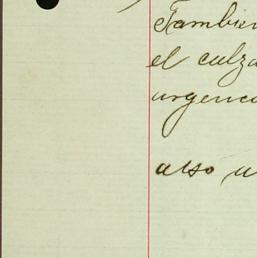 Tambien
el calza
urgenc
also u